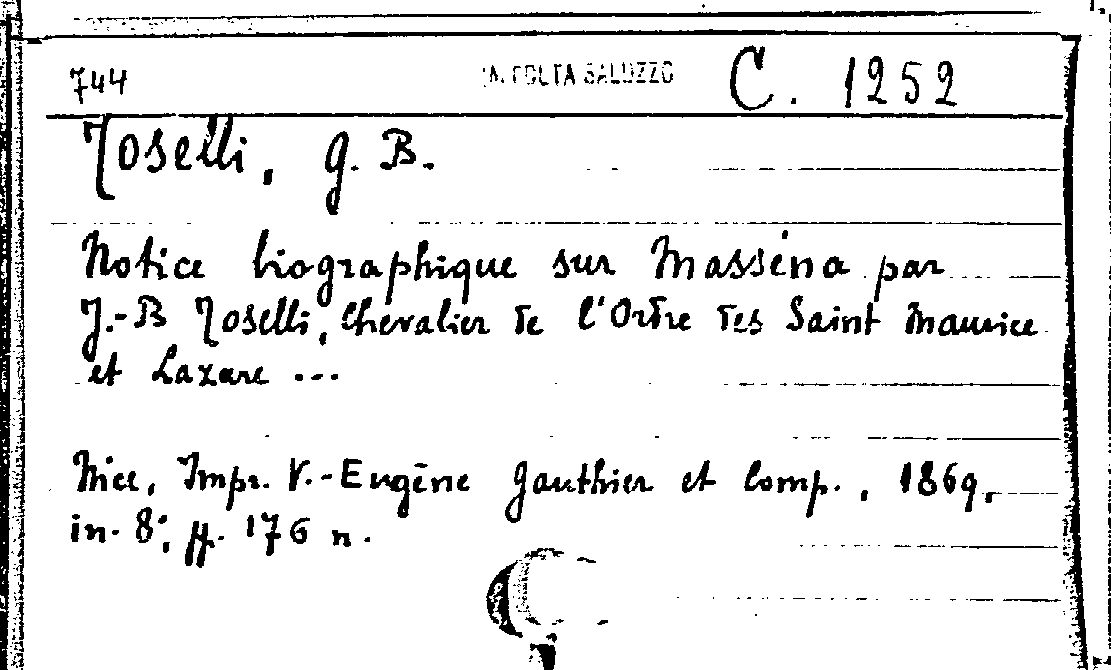 744 RACCOLTA SALUZZO C. 1252
Toselli, G. B.
Notice biographique sur Masséna par
J.-B Toselli, Chevalier de l'Ordre des Saint Maurice
et Lazare ...
Nice, Impr. V.-Eugène Gauthier et Comp., 1869,
in-8°, pp. 176 n.